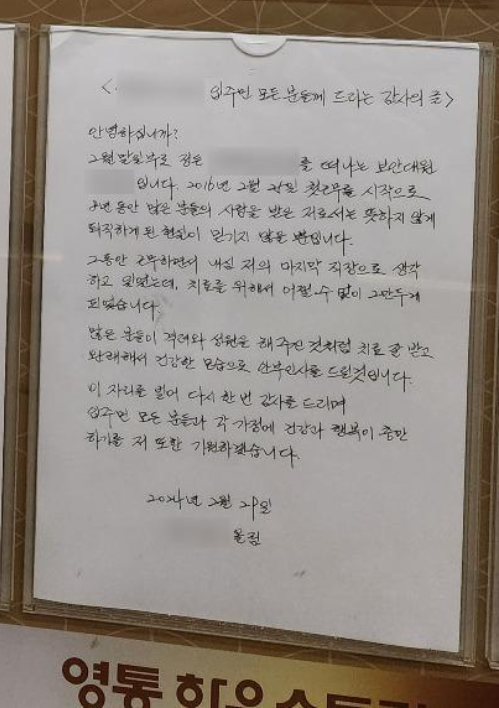 < 입주민 모든 분들께 드리는 감사의 글>
안녕하십니까?
2월 말일부로 정든 를 떠나는 보안대원
입니다. 2016년 2월 28일 첫근무를 시작으로
8년 동안 많은 분들의 사랑을 받은 저로서는 뜻하지 않게
퇴직하게 된 현실이 믿기지 않을 뿐입니다.
그동안 근무하면서 내심 저의 마지막 직장으로 생각
하고 있었는데, 치료를 위해서 어쩔 수 없이 그만두게
되었습니다.
많은 분들이 격려와 성원을 해 주신 것처럼 치료 잘 받고
완쾌해서 건강한 모습으로 안부인사를 드릴것입니다.
이 자리를 빌어 다시 한 번 감사를 드리며
입주민 모든 분들과 각 가정에 건강과 행복이 충만
하기를 저 또한 기원하겠습니다.
2024년 2월 29일
올림
영통 하우스토리